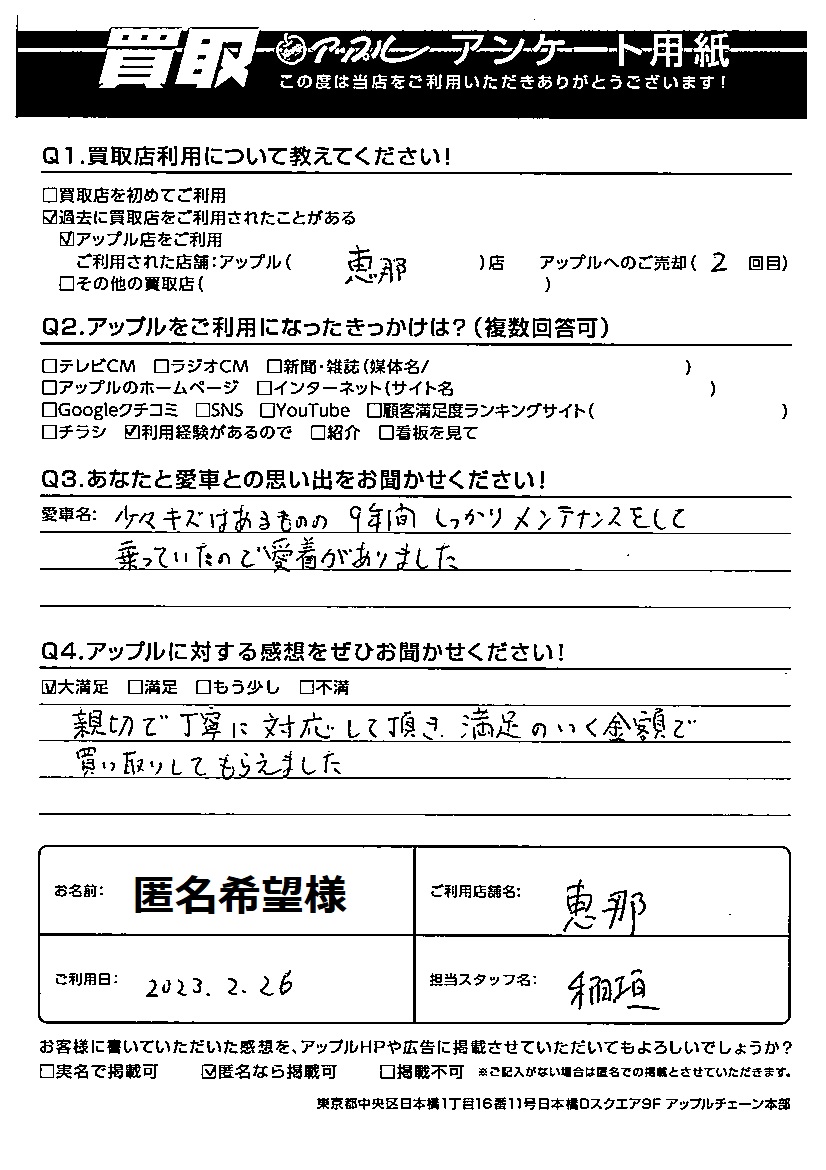 買取 アップル アンケート用紙
この度は当店をご利用いただきありがとうございます!
Q1.買取店利用について教えてください!
□買取店を初めてご利用
☑過去に買取店をご利用されたことがある
☑アップル店をご利用
ご利用された店舗:アップル( 恵那 )店 アップルへのご売却( 2 回目)
□その他の買取店( )
Q2.アップルをご利用になったきっかけは?(複数回答可)
□テレビCM □ラジオCM □新聞・雑誌(媒体名/ )
□アップルのホームページ □インターネット(サイト名 )
□Googleクチコミ □SNS □YouTube □顧客満足度ランキングサイト( )
□チラシ ☑利用経験があるので □紹介 □看板を見て
Q3.あなたと愛車との思い出をお聞かせください!
愛車名: 少々キズはあるものの 9年間 しっかりメンテナンスをして
乗っていたので愛着がありました
Q4.アップルに対する感想をぜひお聞かせください!
☑大満足 □満足 □もう少し □不満
親切で丁寧に対応して頂き 満足のいく金額で
買い取りしてもらえました
お名前: 匿名希望様 ご利用店舗名: 恵那
ご利用日: 2023.2.26 担当スタッフ名: 稲垣
お客様に書いていただいた感想を、アップルHPや広告に掲載させていただいてもよろしいでしょうか?
□実名で掲載可 ☑匿名なら掲載可 □掲載不可 ※ご記入がない場合は匿名での掲載とさせていただきます。
東京都中央区日本橋1丁目16番11号日本橋Dスクエア9F アップルチェーン本部